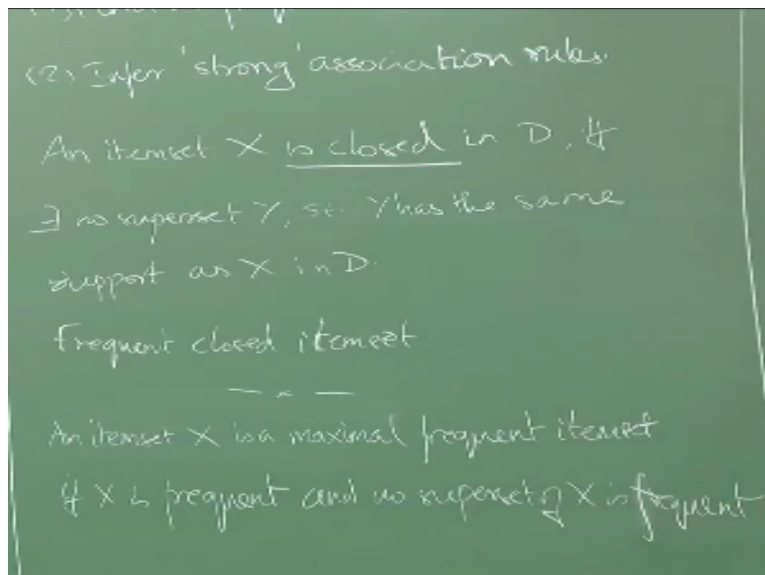 (2) Infer 'strong' association rules.
An itemset X is closed in D, if
∃ no superset Y, st. Y has the same
support as X in D.
Frequent closed itemset
— x —
An itemset X is a maximal frequent itemset
if X is frequent and no superset of X is frequent